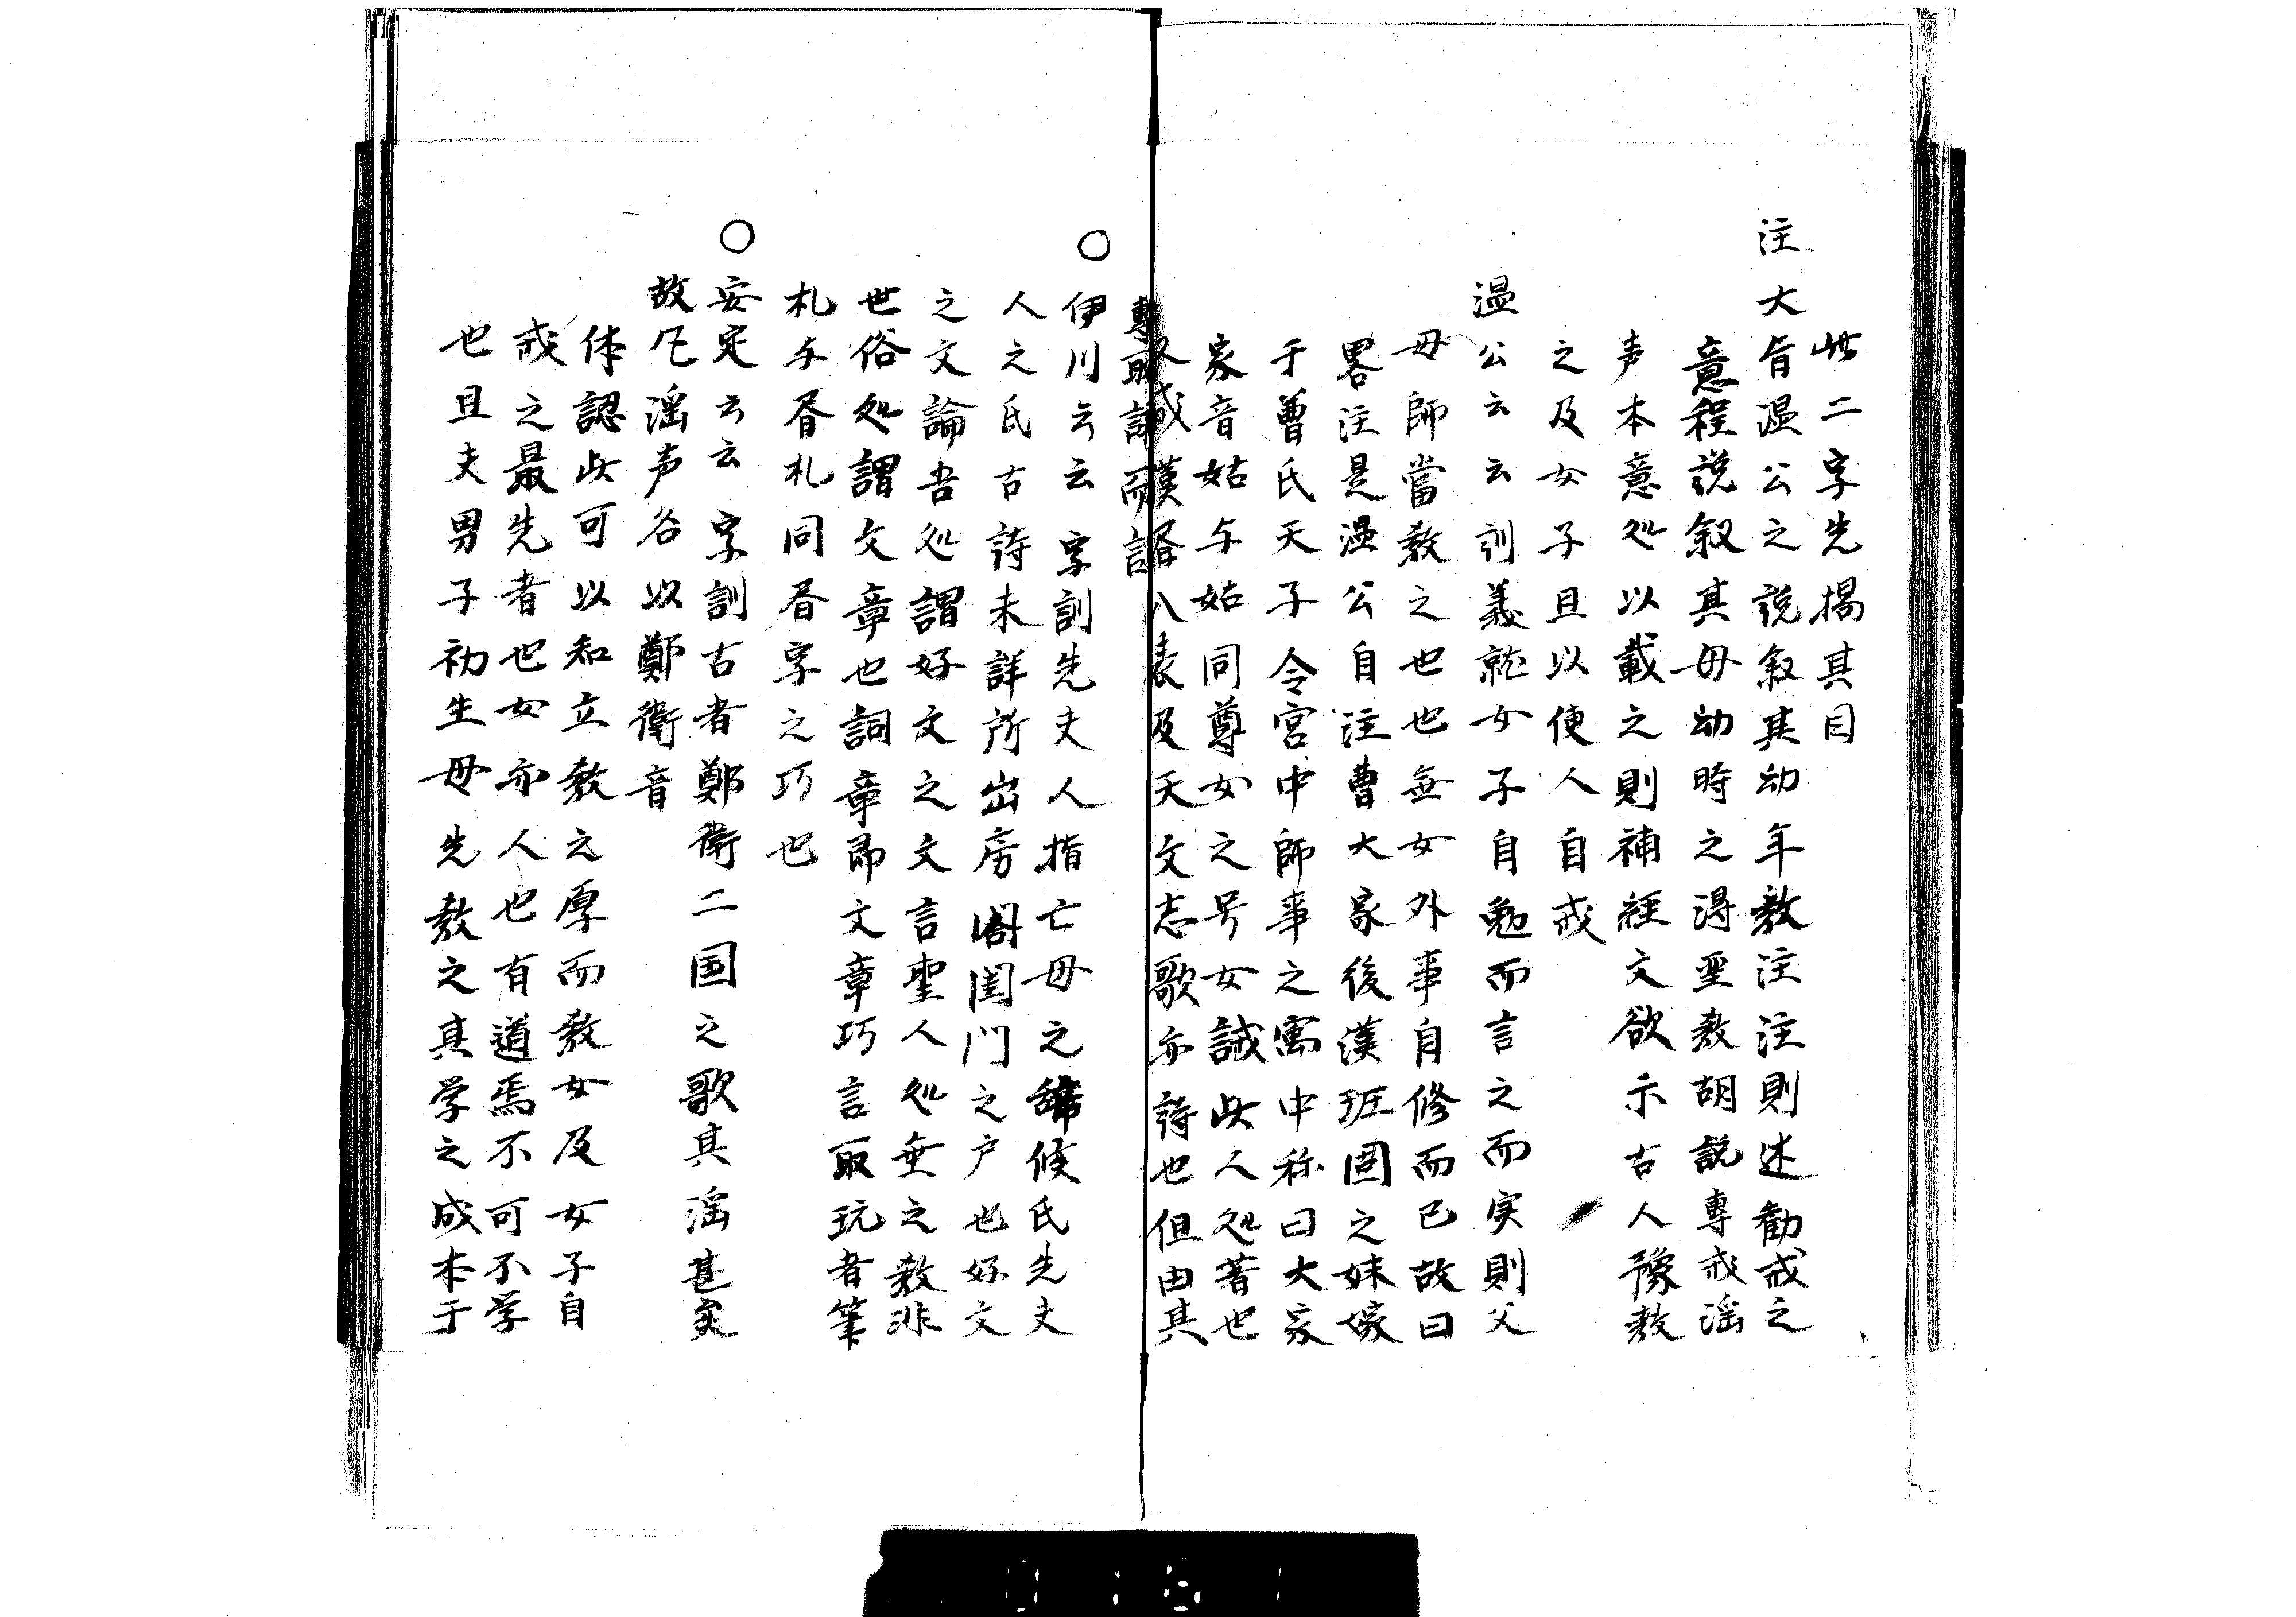 此二字先揭其目
注大旨温公之説叙其幼年教注注則述勧戒之
意程説叙其母幼時之淂聖教胡説專戒滛
声本意処以載之則補経文欲示古人豫教
之及女子且以使人自戒
温公云云訓義就女子自勉而言之而実則父
母師當教之也也無女外事自修而已故曰
畧注是温公自注曹大家後漢班固之妹嫁
于曹氏天子令宮中師事之寓中称曰大家
家音姑与姑同尊女之号女誡此人処著也
又成漢昏八表及天文志歌亦詩也但由其
專取詩而言
○伊川云云字訓先丈人指亡母之称候氏先丈
人之氏古詩未詳所出房閤閨門之戸也好文
之文論吾処謂好文之文言聖人処無之教非
世俗処謂文章也詞章即文章巧言取玩者筆
札与昏札同昏字之巧也
○安定云云字訓古者鄭衛二国之歌其滛甚矣
故凡滛声谷以鄭衛音
体認此可以知立教之厚而教女及女子自
戒之最先者也女亦人也有道焉不可不学
也且夫男子初生母先教之其学之成本于